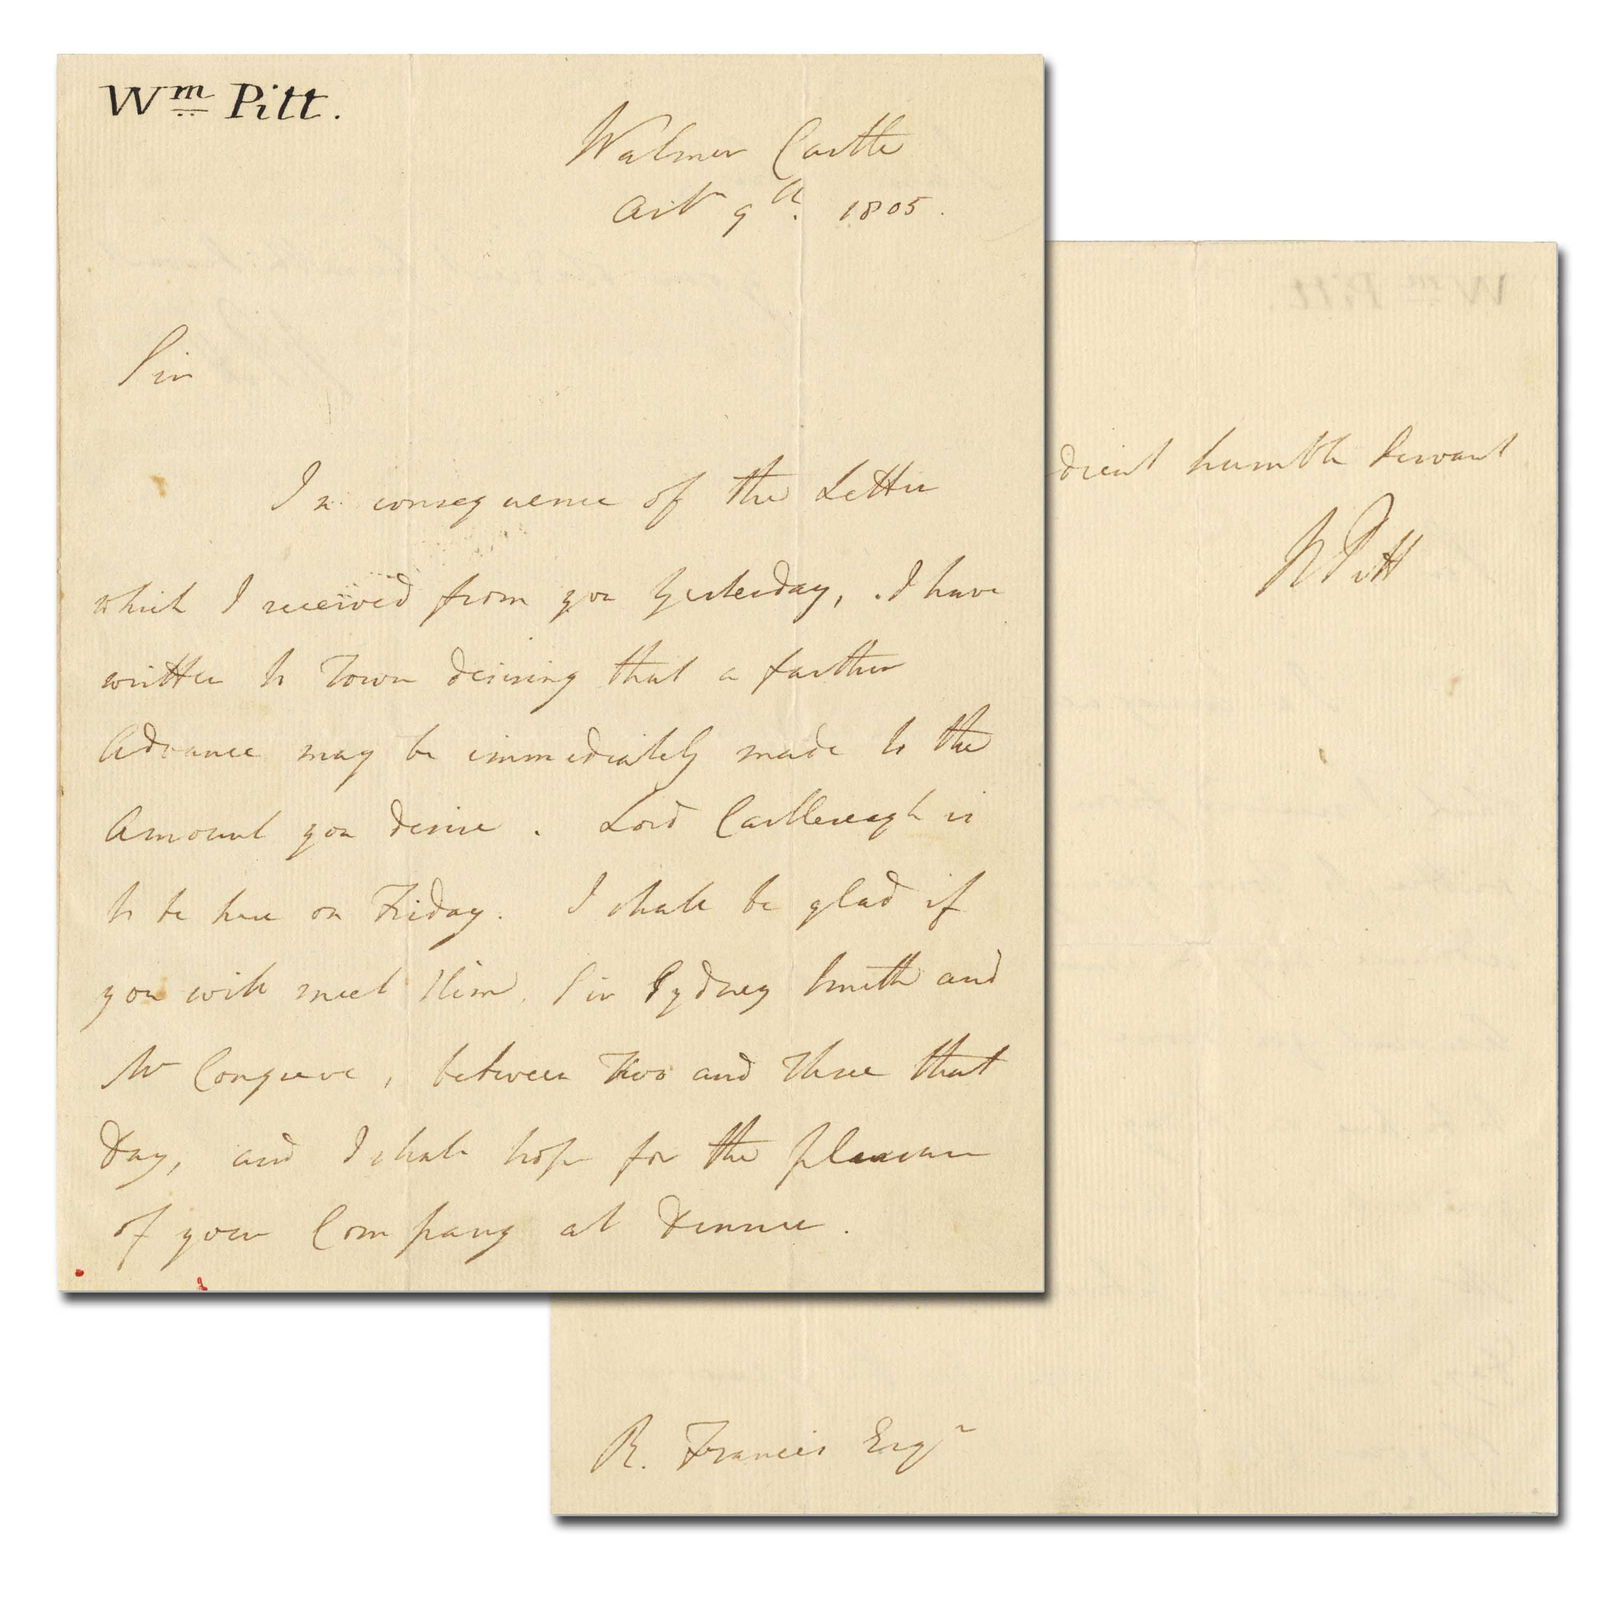 Wm Pitt.
Walmer Castle
Octr 9th. 1805.
Sir
In consequence of the Letter
which I received from you Yesterday, I have
written to Town desiring that a farther
Advance may be immediately made to the
Amount you desire. Lord Castlereagh is
to be here on Friday. I shall be glad if
you will meet Him, Sir Sydney Smith and
Mr Congreve, between Two and Three that
Day, and I shall hope for the pleasure
of your Company at Dinner.
dient humble Servant
W Pitt
R. Francis Esqr